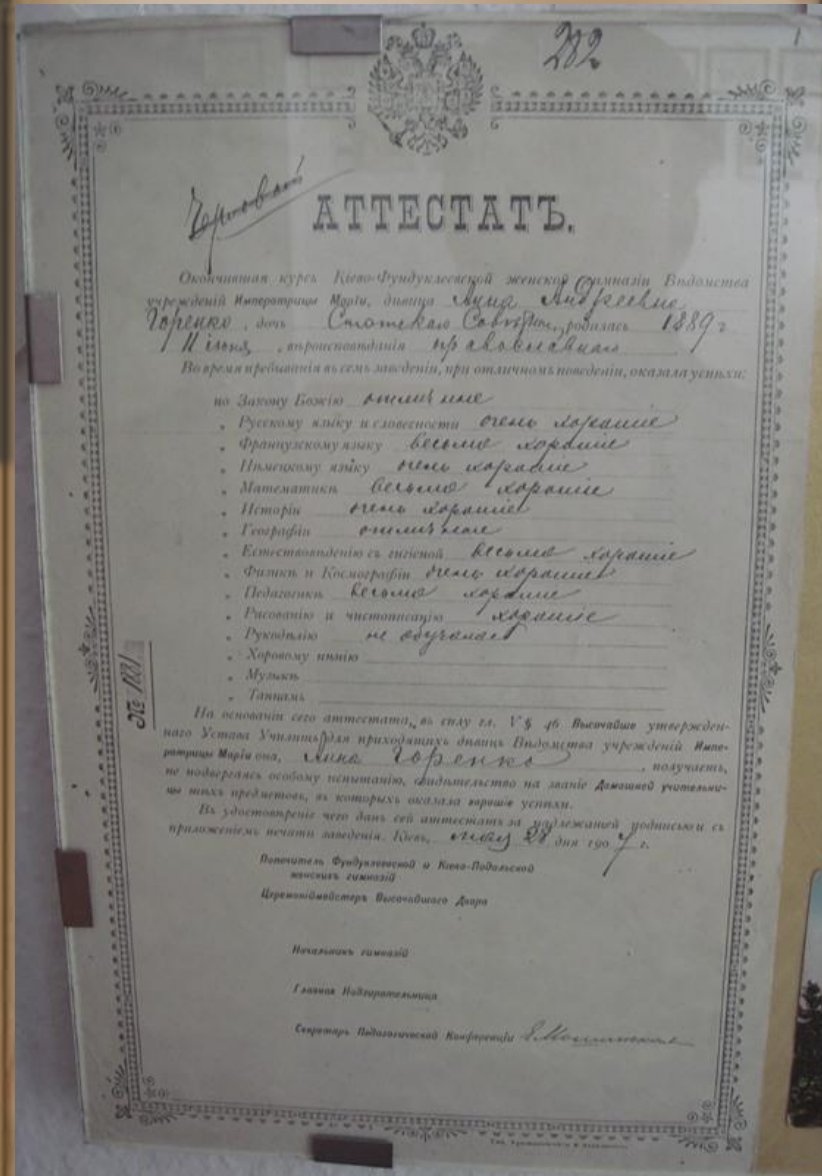 282
Черновой
АТТЕСТАТЪ.
Окончившая курсъ Кіево-Фундуклеевской женской гимназіи Вѣдомства
учрежденій Императрицы Маріи, дѣвица Анна Андреевна
Горенко, дочь Статскаго Совѣтн., родилась 1889 г
11 іюня, вѣроисповѣданія православнаго
Во время пребыванія въ семъ заведеніи, при отличномъ поведеніи, оказала успѣхи:
по Закону Божію отличные
„ Русскому языку и словесности очень хорошіе
„ Французскому языку весьма хорошіе
„ Нѣмецкому языку очень хорошіе
„ Математикѣ весьма хорошіе
„ Исторіи очень хорошіе
„ Географіи отличные
„ Естествовѣдѣнію съ гигіеной весьма хорошіе
„ Физикѣ и Космографіи очень хорошіе
„ Педагогикѣ весьма хорошіе
„ Рисованію и чистописацію хорошіе
„ Рукодѣлію не обучалась
„ Хоровому пѣнію
„ Музыкѣ
„ Танцамъ
№ 1881
На основаніи сего аттестата, въ силу гл. V § 46 Высочайше утвержден-
наго Устава Училищъ для приходящихъ дѣвицъ Вѣдомства учрежденій Импе-
ратрицы Маріи она, Анна Горенко, получаетъ,
не подвергаясь особому испытанію, свидѣтельство на званіе Домашней учительни-
цы тѣхъ предметовъ, въ которыхъ оказала хорошіе успѣхи.
Въ удостовѣреніе чего данъ сей аттестатъ за надлежащей подписью и съ
приложеніемъ печати заведенія. Кіевъ, мая 28 дня 1907 г.
Попечитель Фундуклеевской и Кіево-Подольской
женскихъ гимназій
Церемоніймейстеръ Высочайшаго Двора
Начальникъ гимназій
Главная Надзирательница
Секретарь Педагогической Конференціи